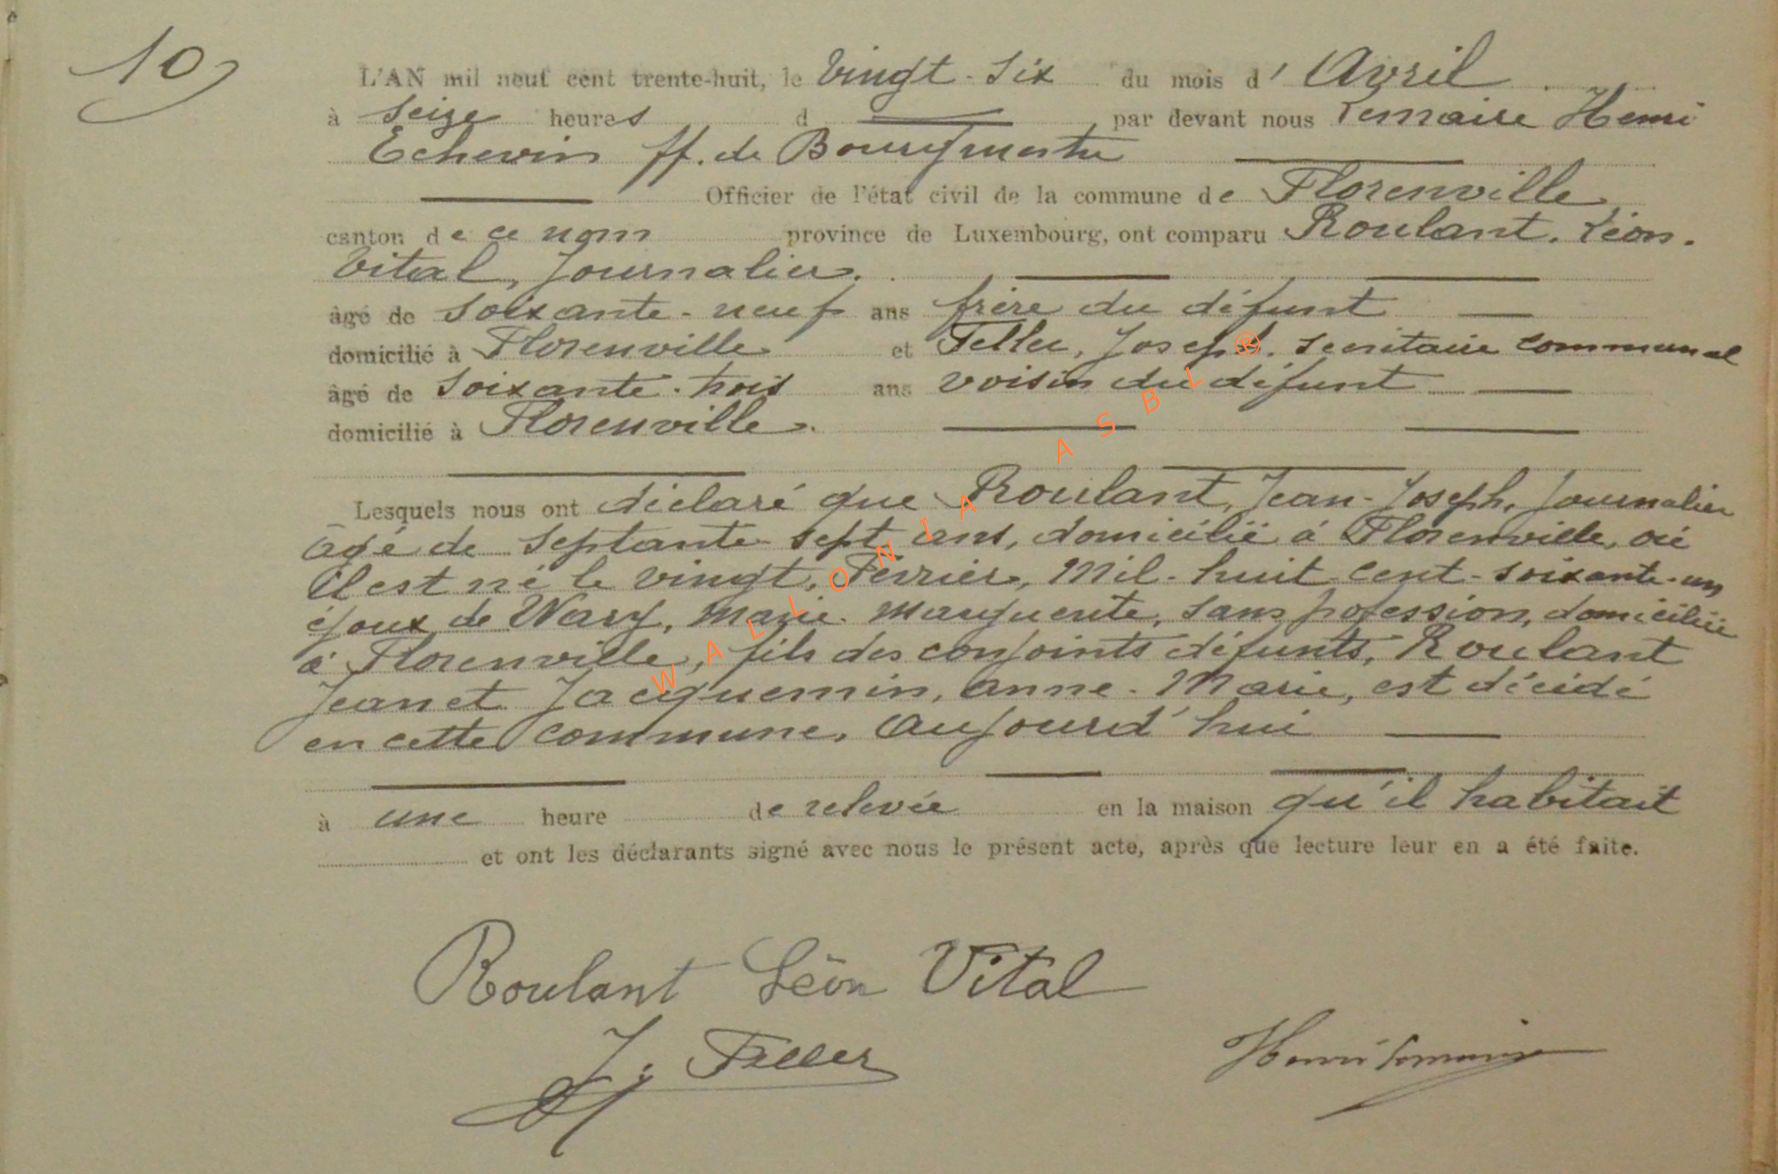 10)
L'AN mil neuf cent trente-huit, le Vingt-Six du mois d' Avril
à Seize heures d par devant nous Lemaire Henri
Echevin ff. de Bourgmestre
Officier de l'état civil de la commune de Florenville
canton de ce nom province de Luxembourg, ont comparu Roulant. Léon.
Vital, Journalier.
âgé de Soixante-neuf ans frère du défunt
domicilié à Florenville et Feller, Joseph. Secrétaire communal
âgé de Soixante-trois ans voisin du défunt
domicilié à Florenville.
Lesquels nous ont déclaré que Roulant, Jean-Joseph, Journalier
âgé de Septante-sept ans, domicilié à Florenville, où
il est né le vingt, Février, Mil-huit-cent-soixante-un
époux de Wary, Marie-Marguerite, sans profession, domiciliée
à Florenville, fils des conjoints défunts, Roulant
Jean et Jacquemin, Anne-Marie, est décédé
en cette commune, aujourd'hui
à une heure de relevée en la maison qu'il habitait
et ont les déclarants signé avec nous le présent acte, après que lecture leur en a été faite.
Roulant Léon Vital
J. Feller
Henri Lemaire
WALLONIA ASBL ®